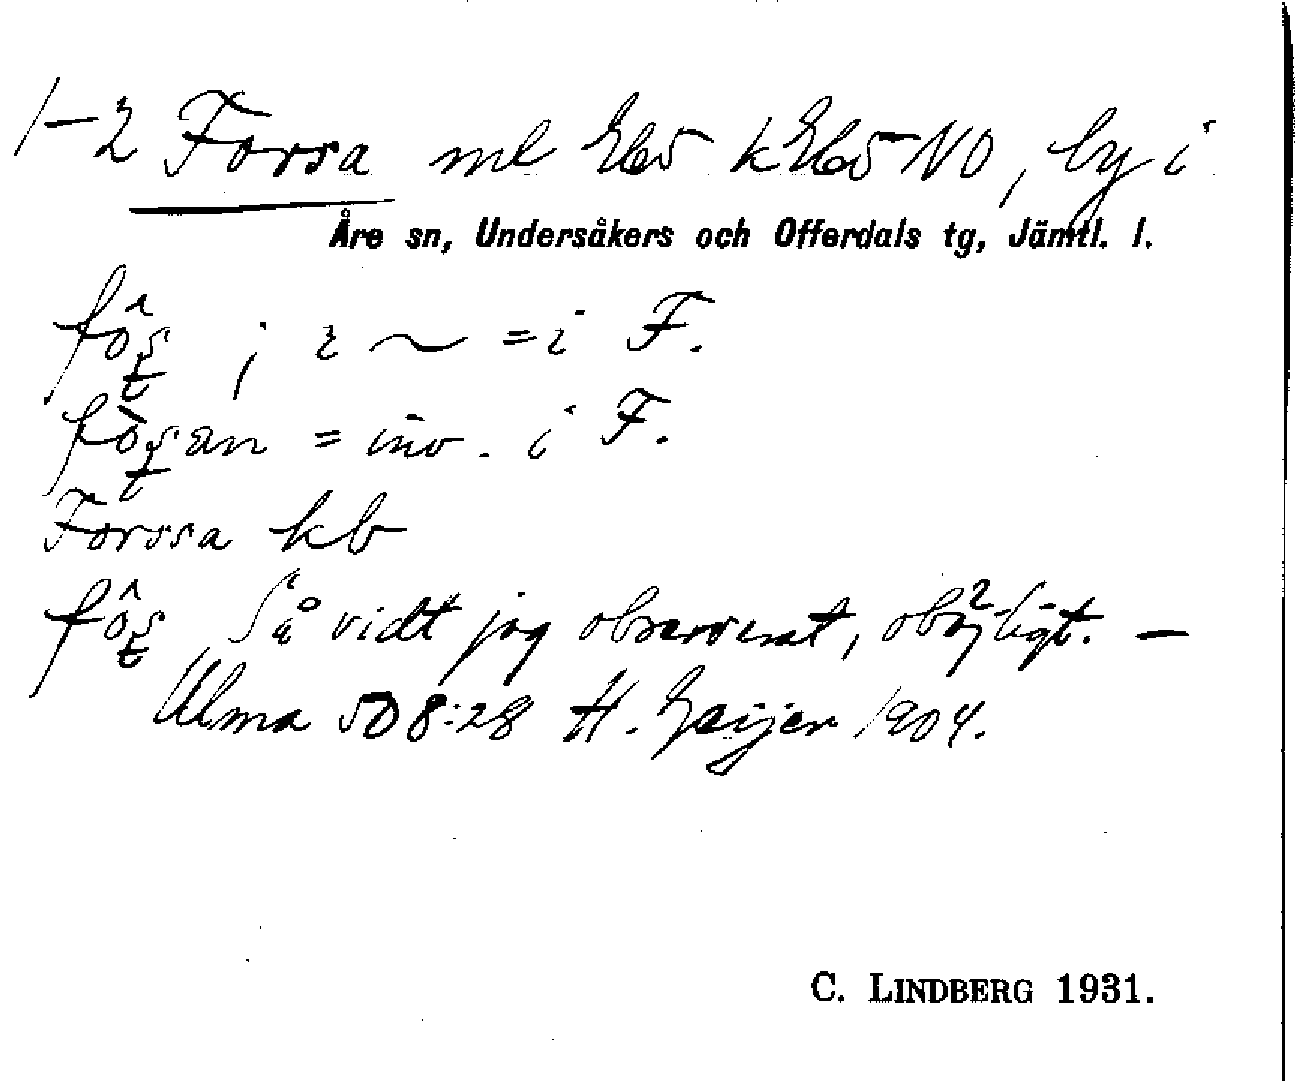 1-2 Forsa ml Ebö k Ebö NO, by i
Åre sn, Undersåkers och Offerdals tg, Jämtl. l.
; ~ = i F.
= inv. i F.
Forssa kb
Så vidt jag observerat, oböjligt. —
Ulma 508:28 H. Geijer 1904.
C. LINDBERG 1931.